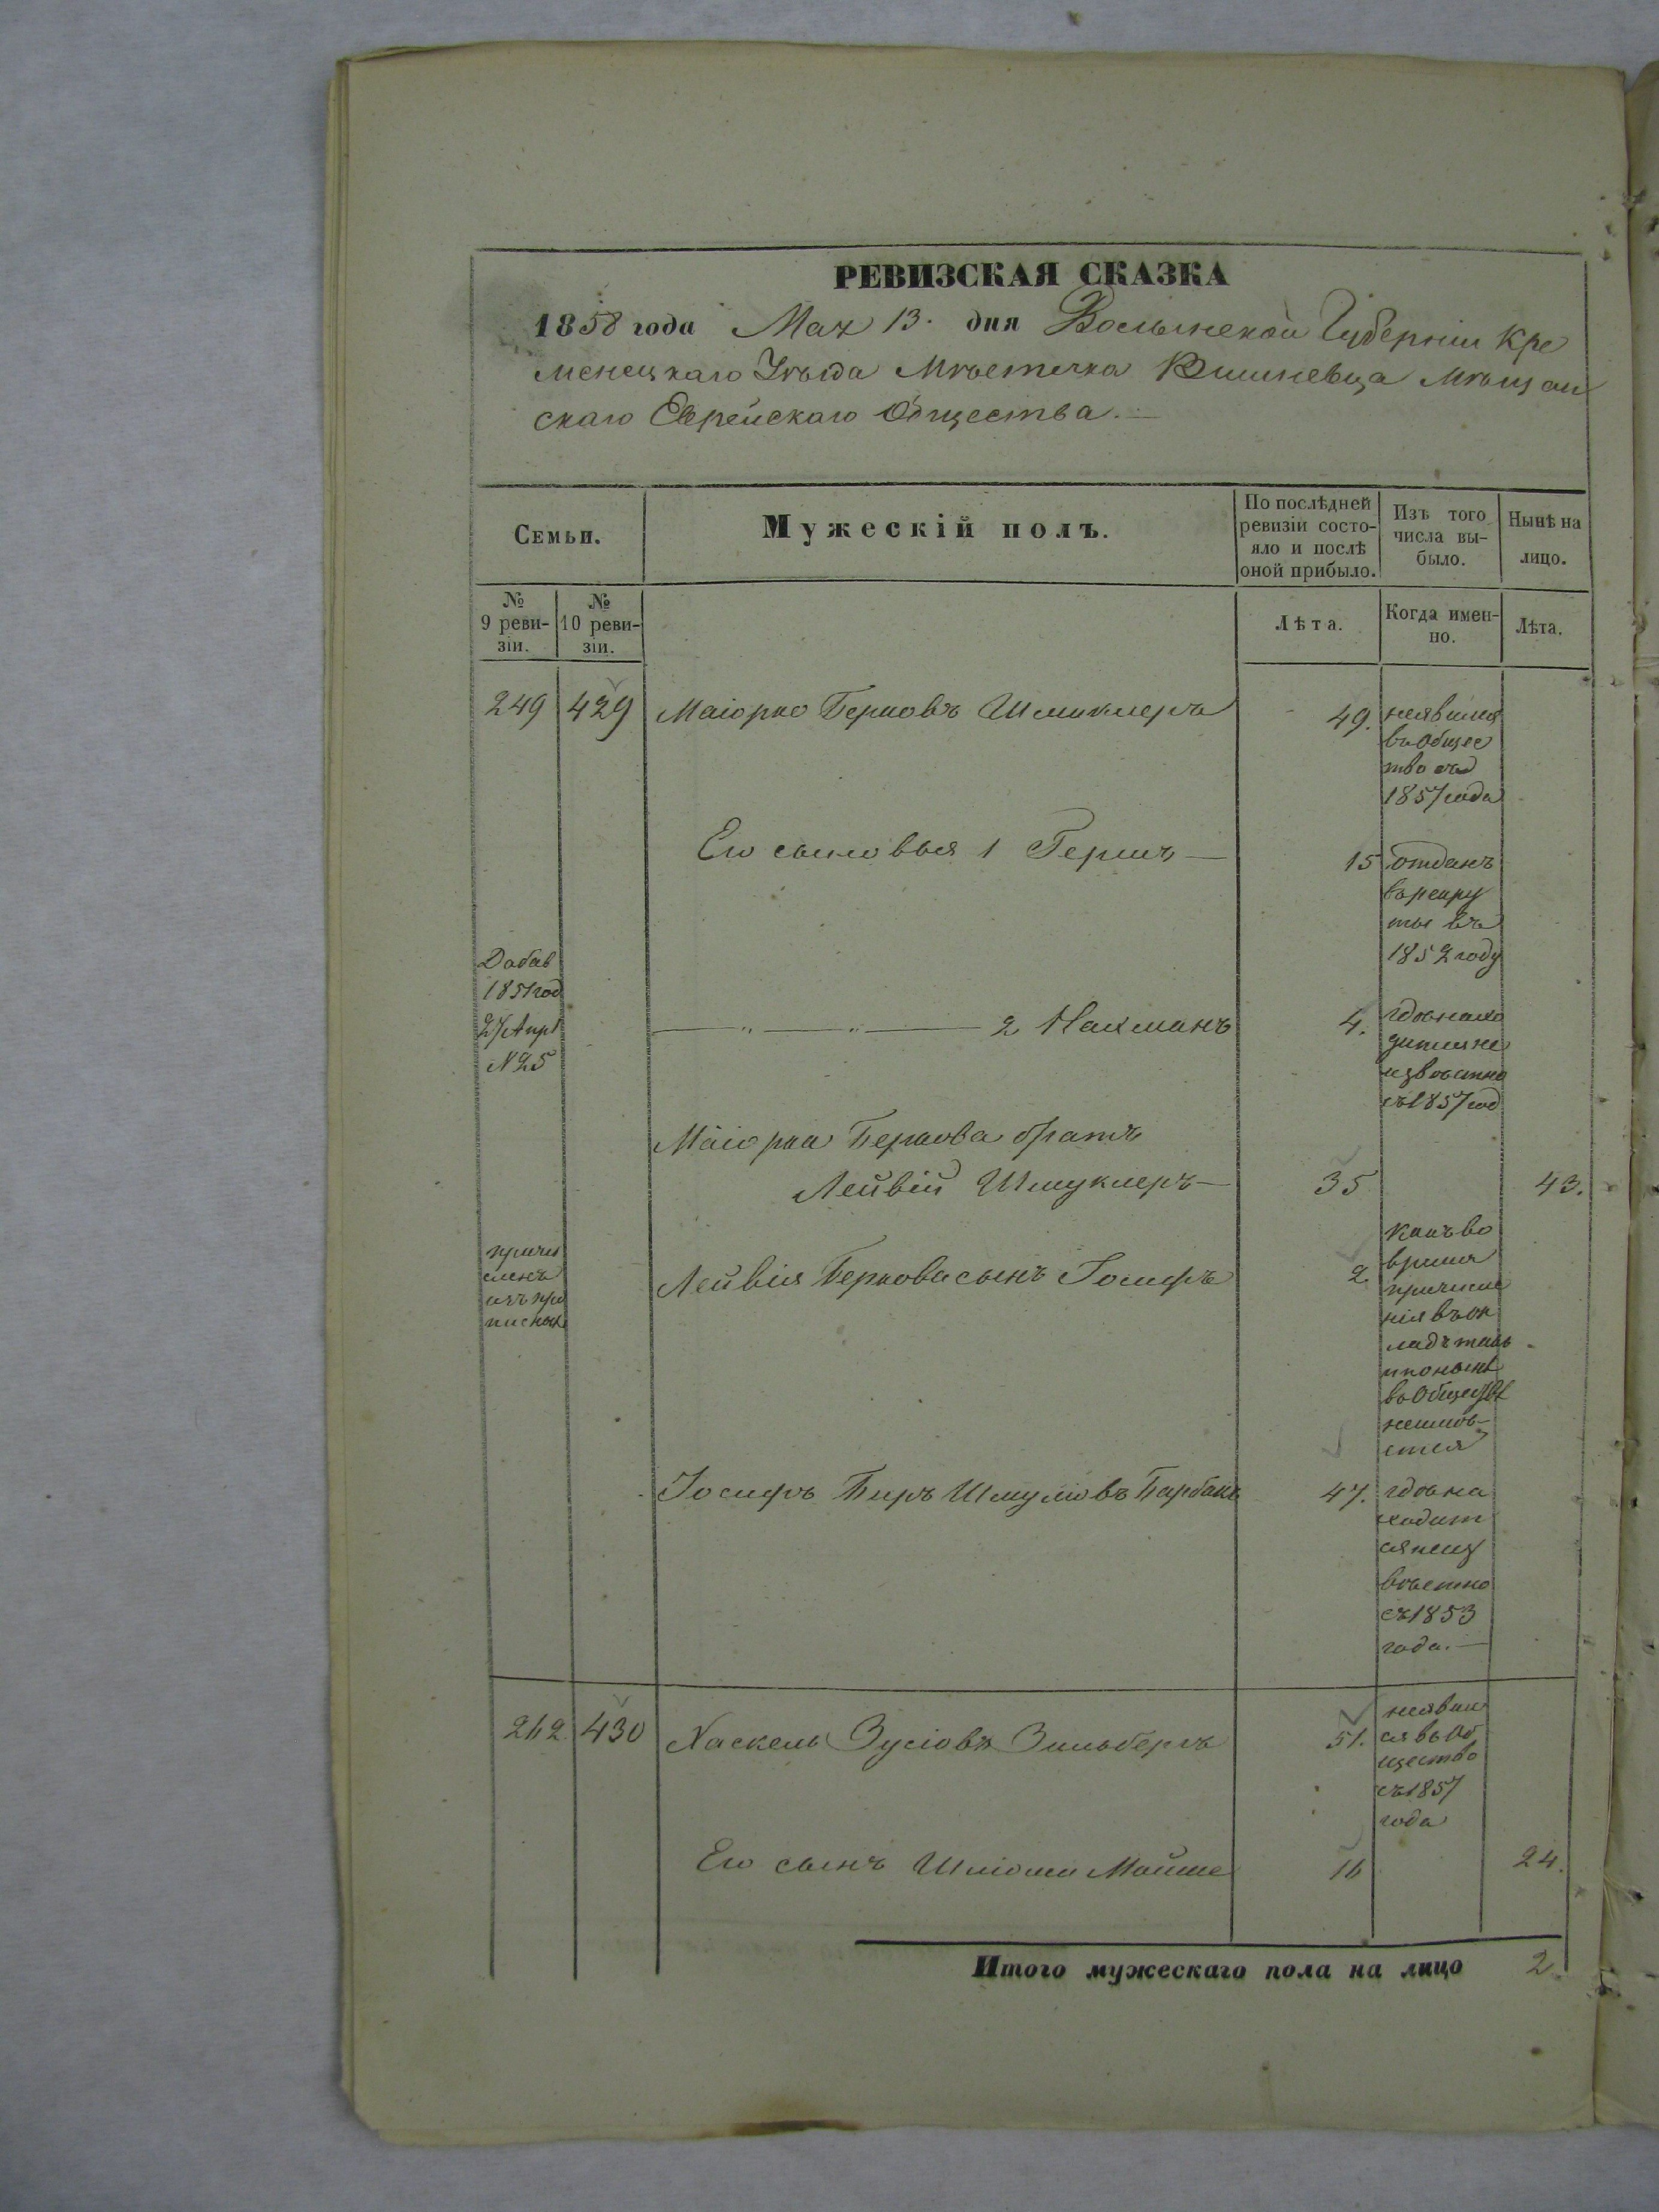 РЕВИЗСКАЯ СКАЗКА
1858 года Мая 13. дня Волынской Губерніи Кре
менецкаго Уѣзда Мѣстечка Вишневца Мѣщан
скаго Еврейскаго Общества.
Семьи.
Мужескій полъ.
По послѣдней
ревизіи состо-
яло и послѣ
оной прибыло.
Изъ того
числа вы-
было.
Нынѣ на
лицо.
№
9 реви-
зіи.
№
10 реви-
зіи.
Лѣта.
Когда имен-
но.
Лѣта.
249 429 Маіорко Берковъ Шмуклеръ 49.
неявился
въ Общес
тво съ
1857 года
Его сыновья 1 Гершъ 15
отданъ
врекру
ты въ
1852 году
Добав
1851 год
27 Апрл
№ 25
2 Нахманъ 4.
гдѣ нахо
дится не
извѣстно
съ 1857 год
Маіорка Беркова братъ
Лейвій Шмуклеръ 35 43.
причи
сленъ
изъ про
писных
Лейвія Беркова сынъ Іосифъ 2.
какъ во
время
причисле
нія въ ок
ладъ такъ
и понынѣ
въ Обществѣ
неимѣ-
ется
Іосифъ Беръ Шмулювъ Барбакъ 47.
гдѣ на
ходит
ся неиз
вѣстно
съ 1853
года.
262. 430 Хаскель Зусіовъ Зильбергъ 51.
неявил
ся въ Об
щество
съ 1857
года
Его сынъ Шліома Мойше 16 24.
Итого мужескаго пола на лицо 2.